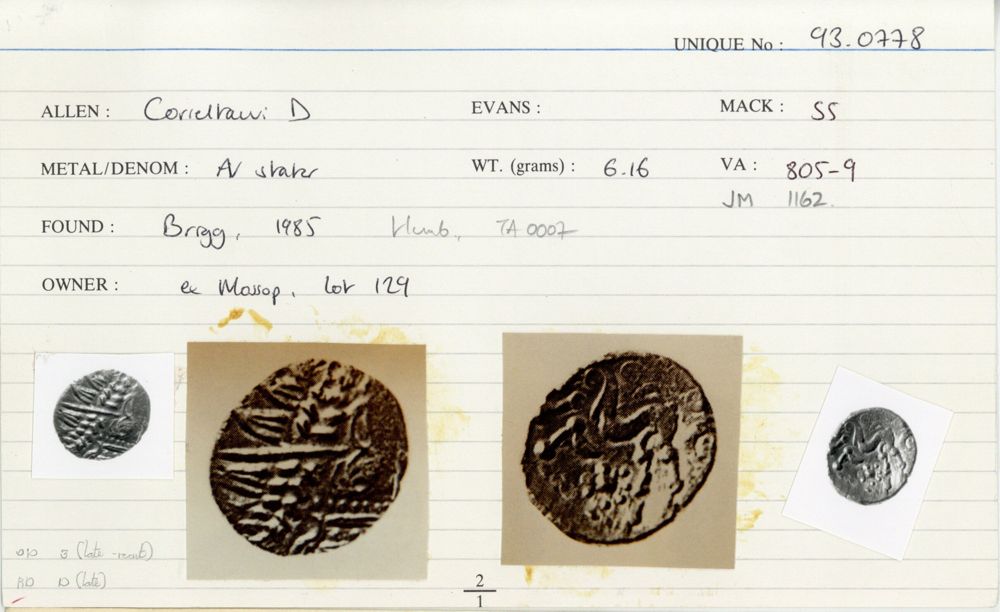 UNIQUE No : 93.0778
ALLEN : Corieltauvi D EVANS : MACK : 55
METAL/DENOM : AV stater WT. (grams) : 6.16 VA : 805-9
JM 1162.
FOUND : Brigg, 1985 Humb., TA 0007
OWNER : ex Mossop, Lot 129
B (late - ) 
D (late)
2
1